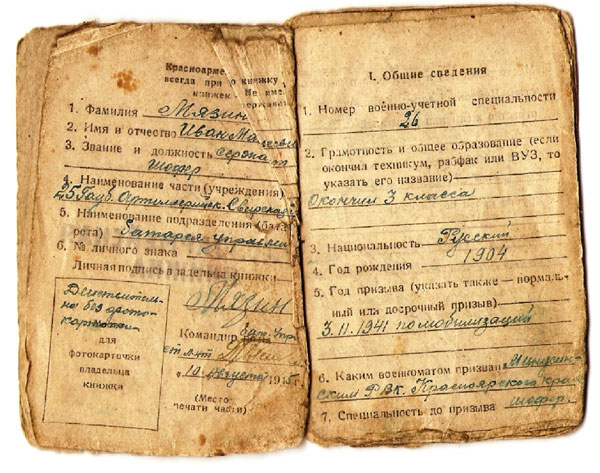 Красноарме
всегда при книжку
книжек - Не име
держиват
1. Фамилия Мязин
2. Имя и отчество Иван
3. Звание и должность сержант
шофер
4. Наименование части (учреждения)
25 Гауб. Артиллерийск. Свирская
5. Наименование подразделения (бата
рота) батарея управлен
6. № личного знака
Личная подпись владельца книжки
Мязин
Действитель
на без фото-
карточки
для
фотокарточки
владельца
книжки
Командир
"10" августа 1945 г.
(Место
печати части)
I. Общие сведения
1. Номер военно-учетной специальности
26
2. Грамотность и общее образование (если
окончил техникум, рабфак или ВУЗ, то
указать его название)
Окончил 3 класса
3. Национальность Русский
4. Год рождения 1904
5. Год призыва (указать также — нормаль-
ный или досрочный призыв)
3.11.1941 по мобилизаций
6. Каким военкоматом призван
ским РВК. Красноярского края
7. Специальность до призыва шофер.